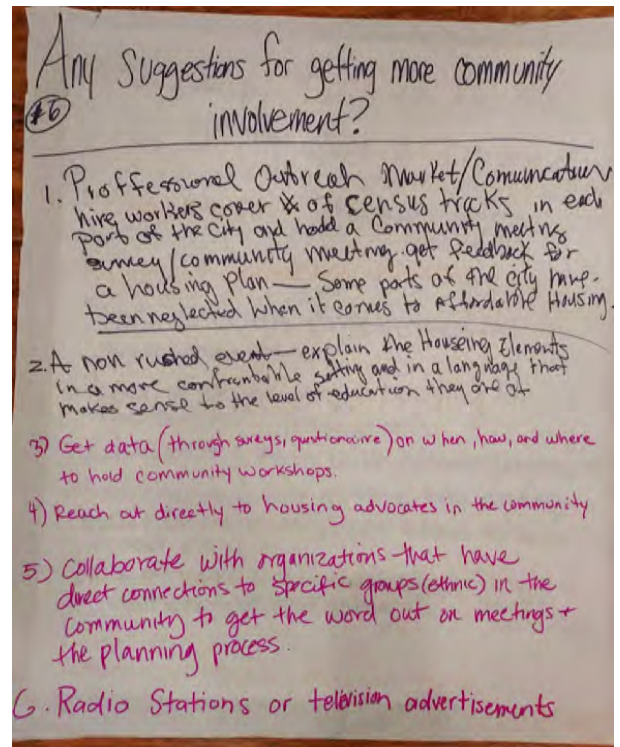 Any Suggestions for getting more community
#6 involvement?
1. Proffessional Outreach Market/Comumcation
hire workers cover # of census tracks in each
part of the City and hodd a Community meeting
survey/community meeting. get feedback for
a housing Plan — Some parts of the city have
been neglected when it comes to Affordable Housing.
2. A non rushed event — explain the Houseing Elements
in a more comfrontable setting and in a language that
makes sense to the level of education they are at
3) Get data (through sureys, quntionaire) on when, how, and where
to hold community workshops.
4) Reach out directly to housing advocates in the community
5) Collaborate with organizations that have
direct connections to specific groups (ethnic) in the
community to get the word out on meetings +
the planning process.
6. Radio Stations or television advertisements